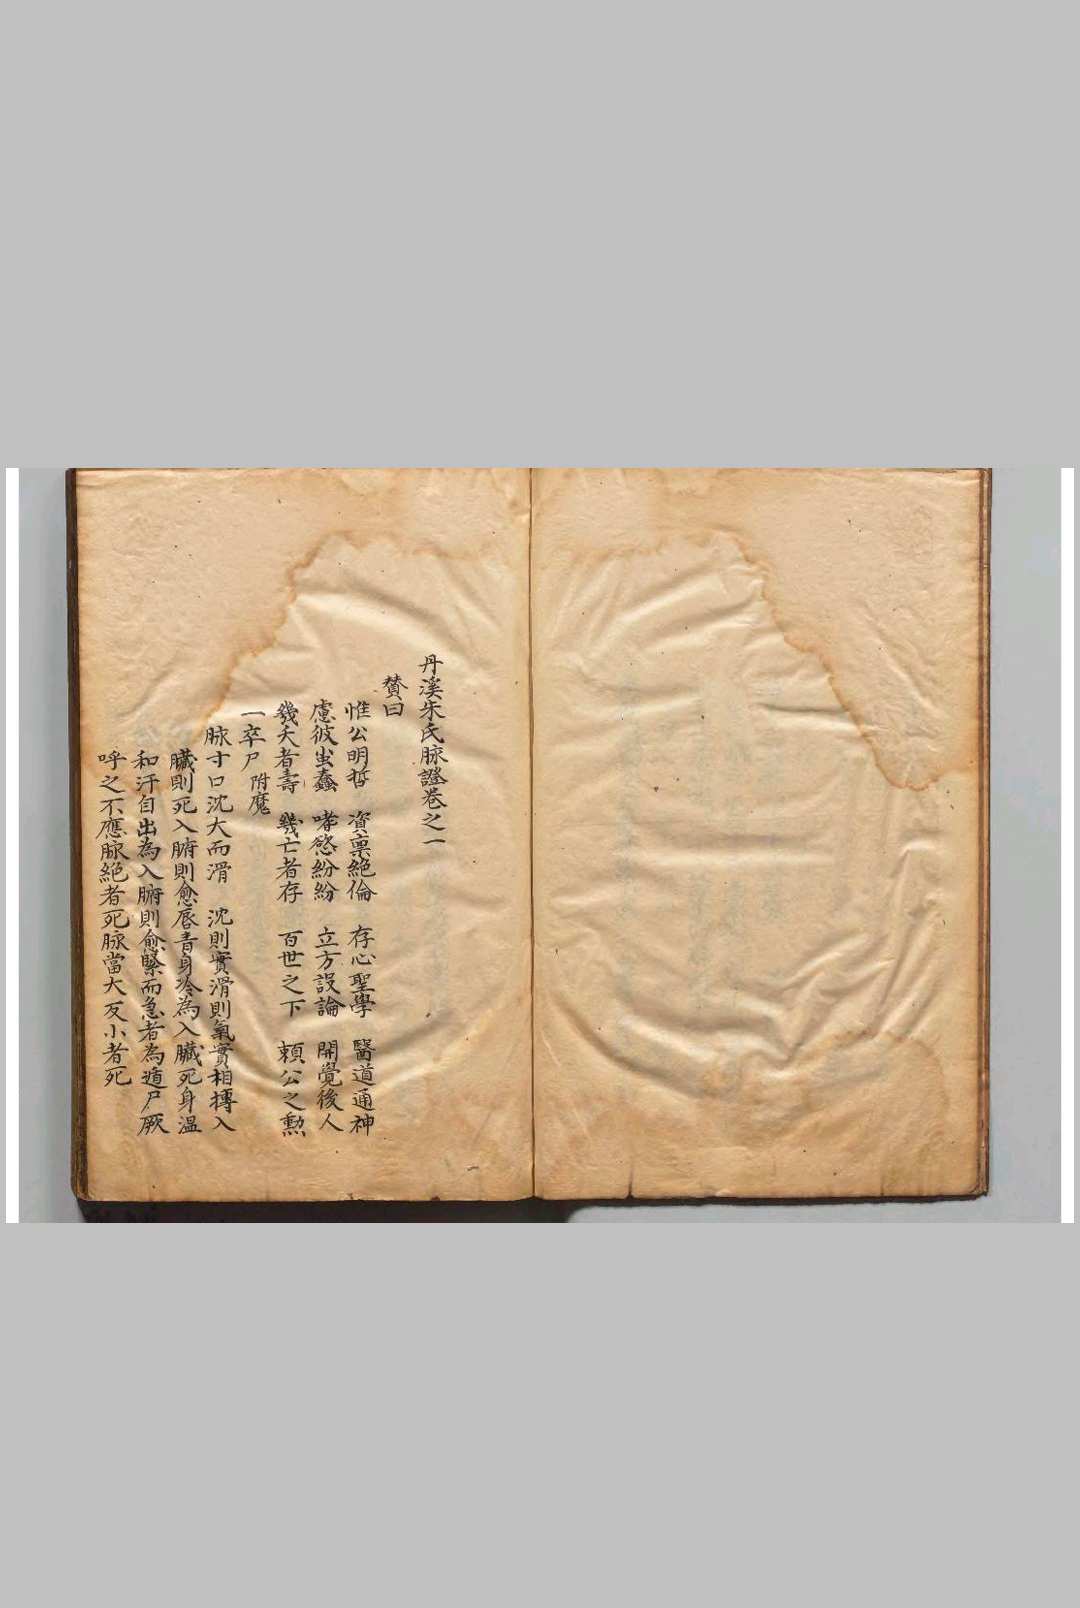 丹溪朱氏脉證卷之一
賛曰
惟公明哲 資禀絶倫 存心聖學 醫道通神
慮彼蚩蠢 嗜慾紛紛 立方設論 開覺後人
幾夭者壽 幾亡者存 百世之下 頼公之勲
一卒尸 附魔
脉寸口沈大而滑 沈則實滑則氣實相搏入
臟則死入腑則愈唇青身冷為入臟死身温
和汗自出為入腑則愈緊而急者為遁尸厥
呼之不應脉絶者死脉當大反小者死